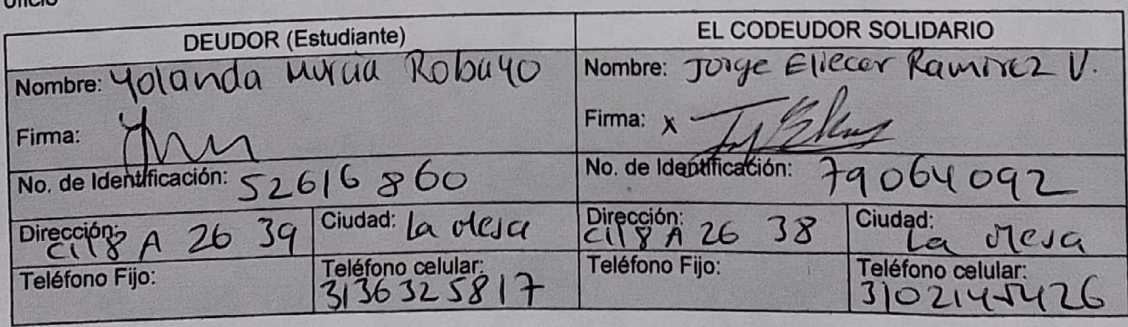 DEUDOR (Estudiante)
EL CODEUDOR SOLIDARIO
Nombre: Yolanda Murcia Robayo
Nombre: Jorge Eliecer Ramirez V.
Firma:
Firma: x
No. de Identificación: 52616860
No. de Identificación: 79064092
Dirección: Cll 8 A 26 39
Ciudad: La Mesa
Dirección: Cll 8 A 26 38
Ciudad: La Mesa
Teléfono Fijo:
Teléfono celular: 3136325817
Teléfono Fijo:
Teléfono celular: